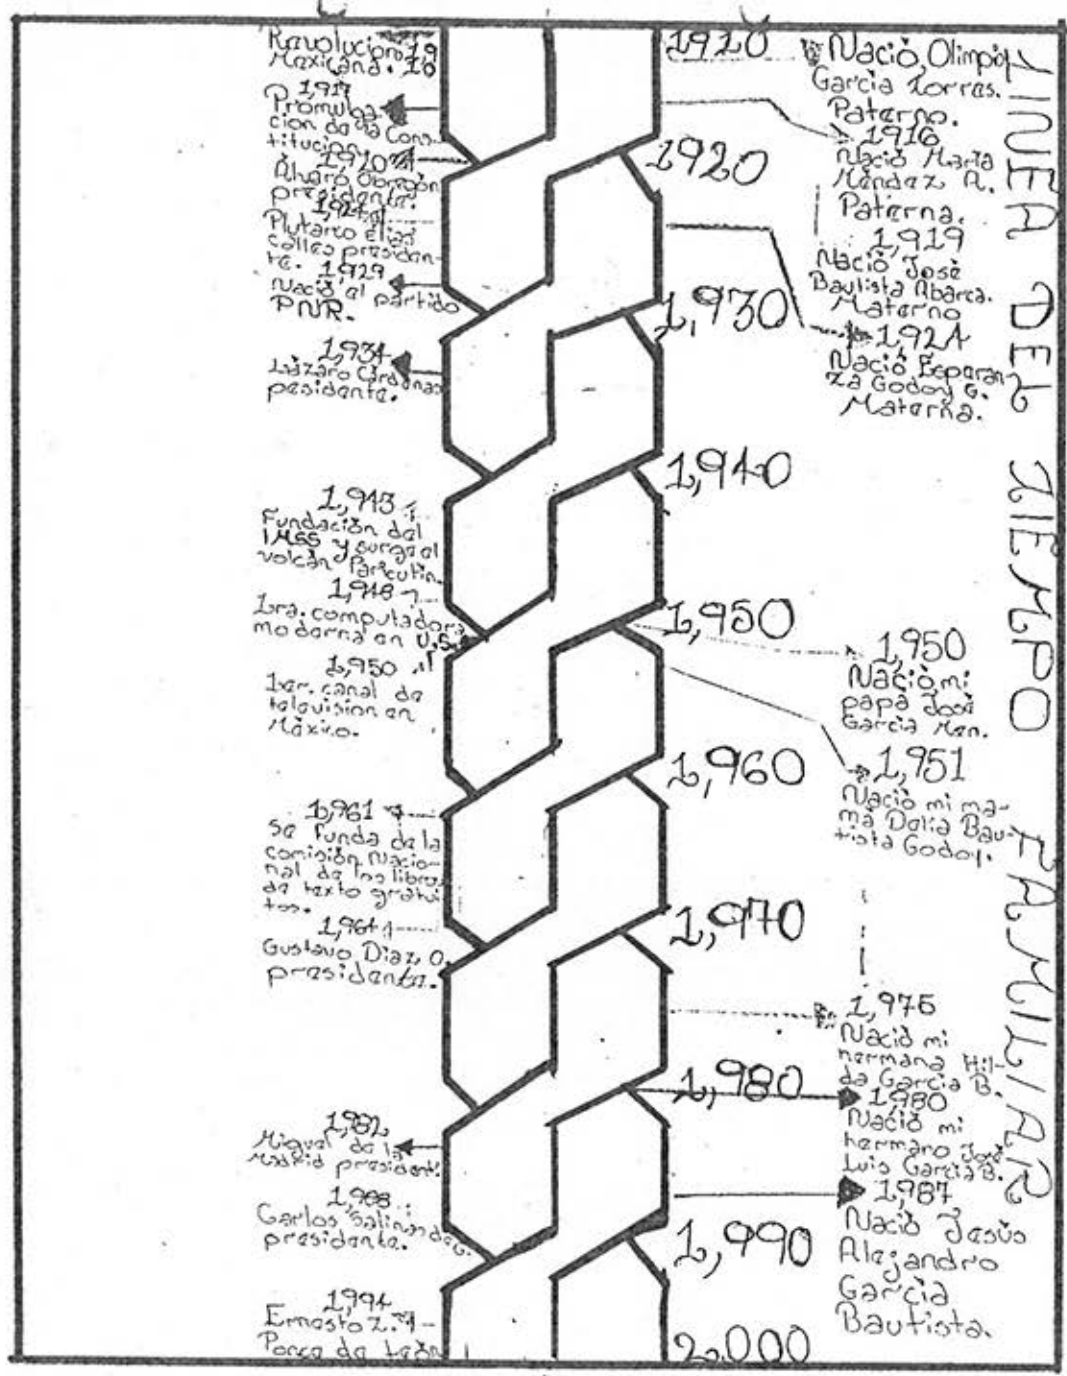 LINEA DEL TIEMPO FAMILIAR
Revolución 19
Mexicana. 10
1,917
Promulga-
cion de la Cons-
titucion
1,920
Álvaro Obregón
presidente.
1,924
Plutarco Elías
calles presiden-
te. 1,929
Nació el partido
PNR.
1,934
Lázaro Cárdenas
pesidente.
1,943
Fundación del
IMSS y surge el
volcán Paricutin.
1,948
1ra. computadora
moderna en U.S.
1,950
1er. canal de
television en
México.
1,961
Se funda de la
comisión Nacio-
nal de los libros
de texto gratui
tos.
1,964
Gustavo Díaz O.
presidente.
1,982
Miguel de la
Madrid president.
1,988
Carlos Salinas de G.
presidente.
1,994
Ernesto Z.
Ponce de León
1910
1920
1,930
1,940
1,950
1,960
1,970
1,980
1,990
2,000
Nació Olimpio
García Torres.
Paterno.
1916
Nació María
Méndez A.
Paterna.
1,919
Nació José
Bautista Abarca.
Materno
1,924
Nació Esperan-
za Godoy G.
Materna.
1,950
Nació mi
papá José
García Men.
1,951
Nació mi ma-
má Delia Bau-
tista Godoy.
1,975
Nació mi
hermana Hil-
da García B.
1,980
Nació mi
hermano José
Luis García B.
1,987
Nació Jesús
Alejandro
García
Bautista.